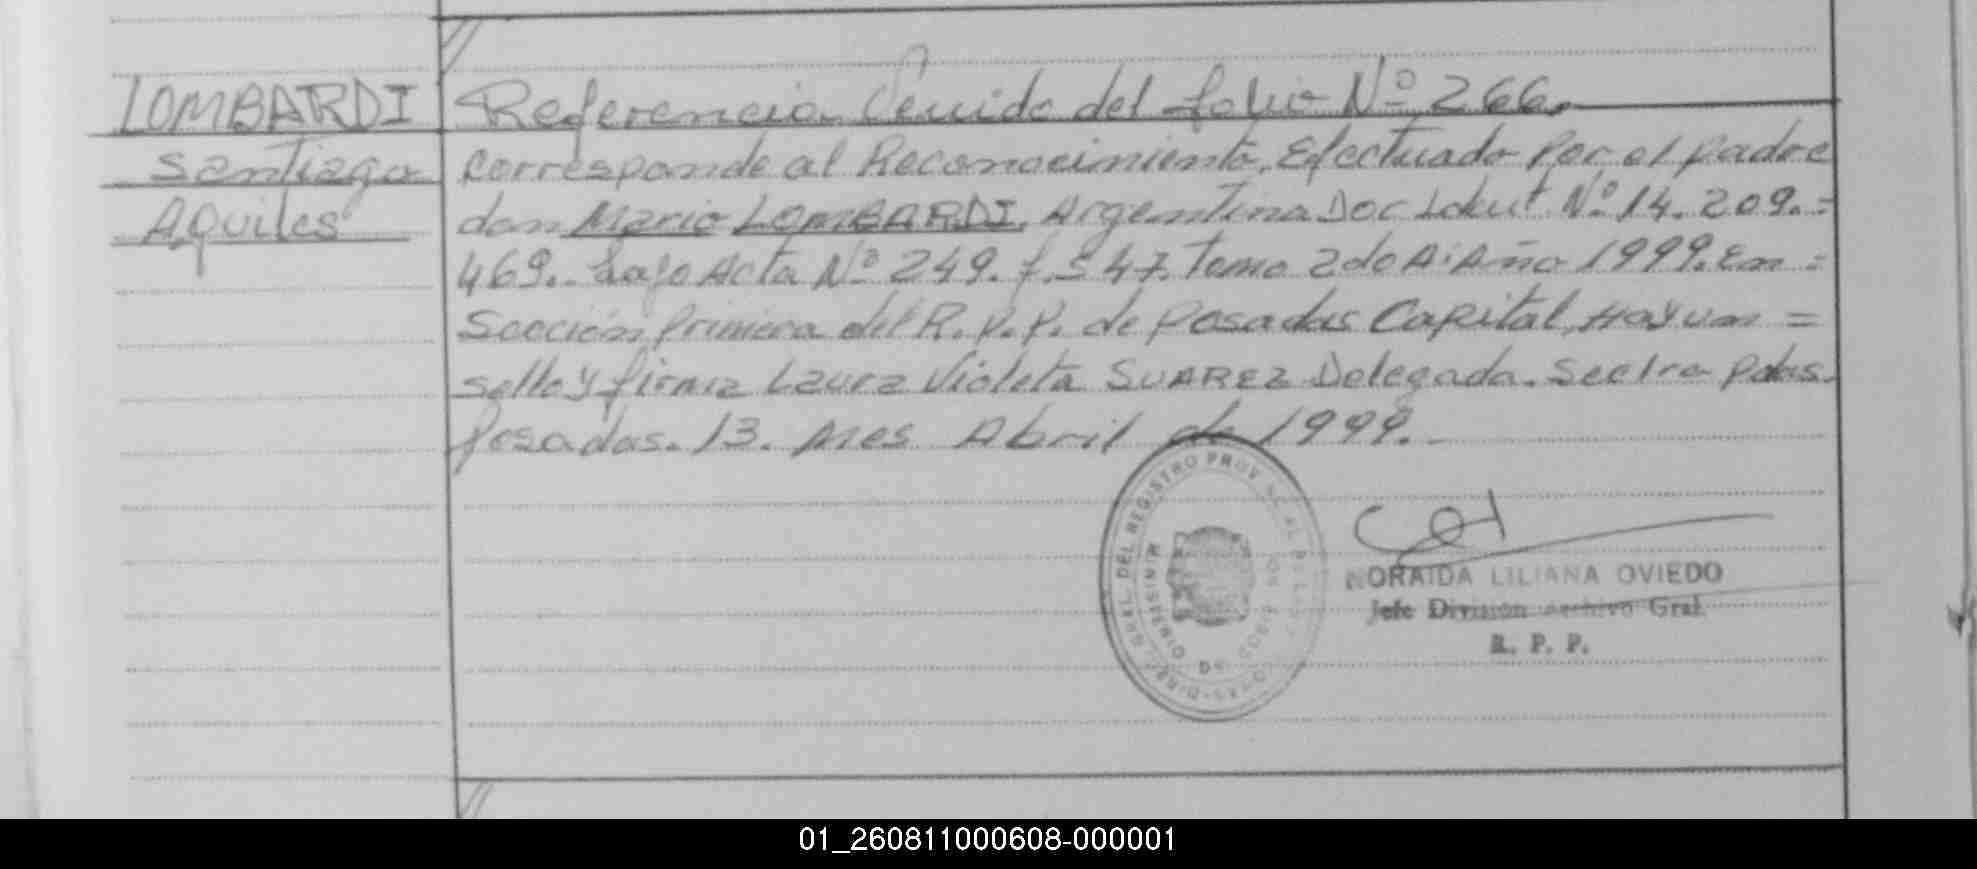 LOMBARDI
Santiago
Aquiles
Referencia Venido del folio Nº 266.
Corresponde al Reconocimiento, Efectuado Por el padre
don Mario LOMBARDI, Argentina Doc Nº 14.209.=
469.- bajo Acta Nº 249. f. S 47. Tomo 2do A: Año 1999. En =
Sección Primera del R.P.P. de Posadas Capital, Hay un =
sello y firma Laura Violeta SUAREZ Delegada. Secc 1ra Pdas.
Posadas. 13. Mes Abril de 1999.-
DEL REGISTRO PROV
MINISTERIO DE
NORAIDA LILIANA OVIEDO
Jefe División Archivo Gral
R. P. P.
01_260811000608-000001